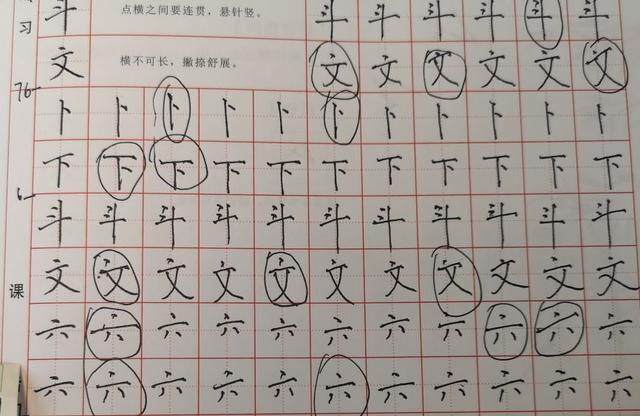 习
斗 点横之间要连贯，悬针竖。 斗 斗 斗 斗 斗 斗
文 横不可长，撇捺舒展。 文 文 文 文 文 文
76
卜 卜 卜 卜 卜 卜 卜 卜 卜 卜 卜
下 下 下 下 下 下 下 下 下 下 下
斗 斗 斗 斗 斗 斗 斗 斗 斗 斗 斗
课
文 文 文 文 文 文 文 文 文 文 文
六 六 六 六 六 六 六 六 六 六 六
六 六 六 六 六 六 六 六 六 六 六